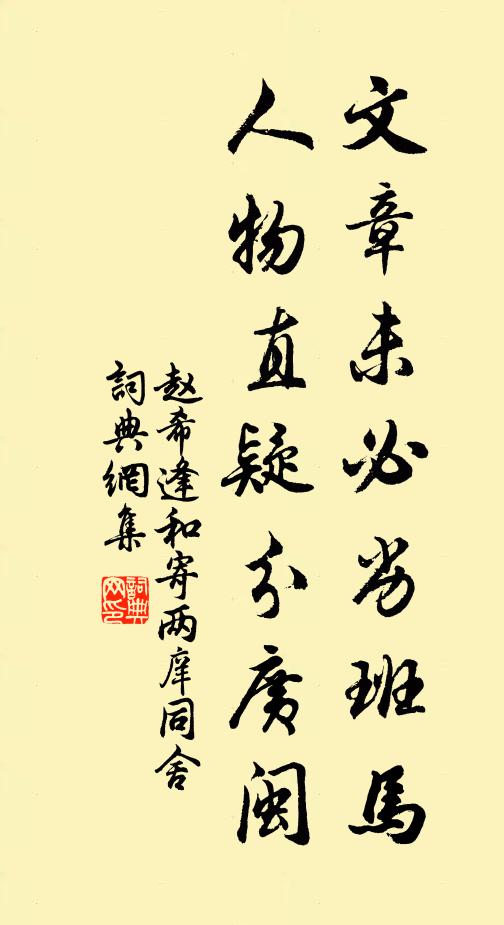 文章未必劣班馬
人物直疑分廣閩
赵希逢和寄两庠同舍
詞典網集
詞典網印